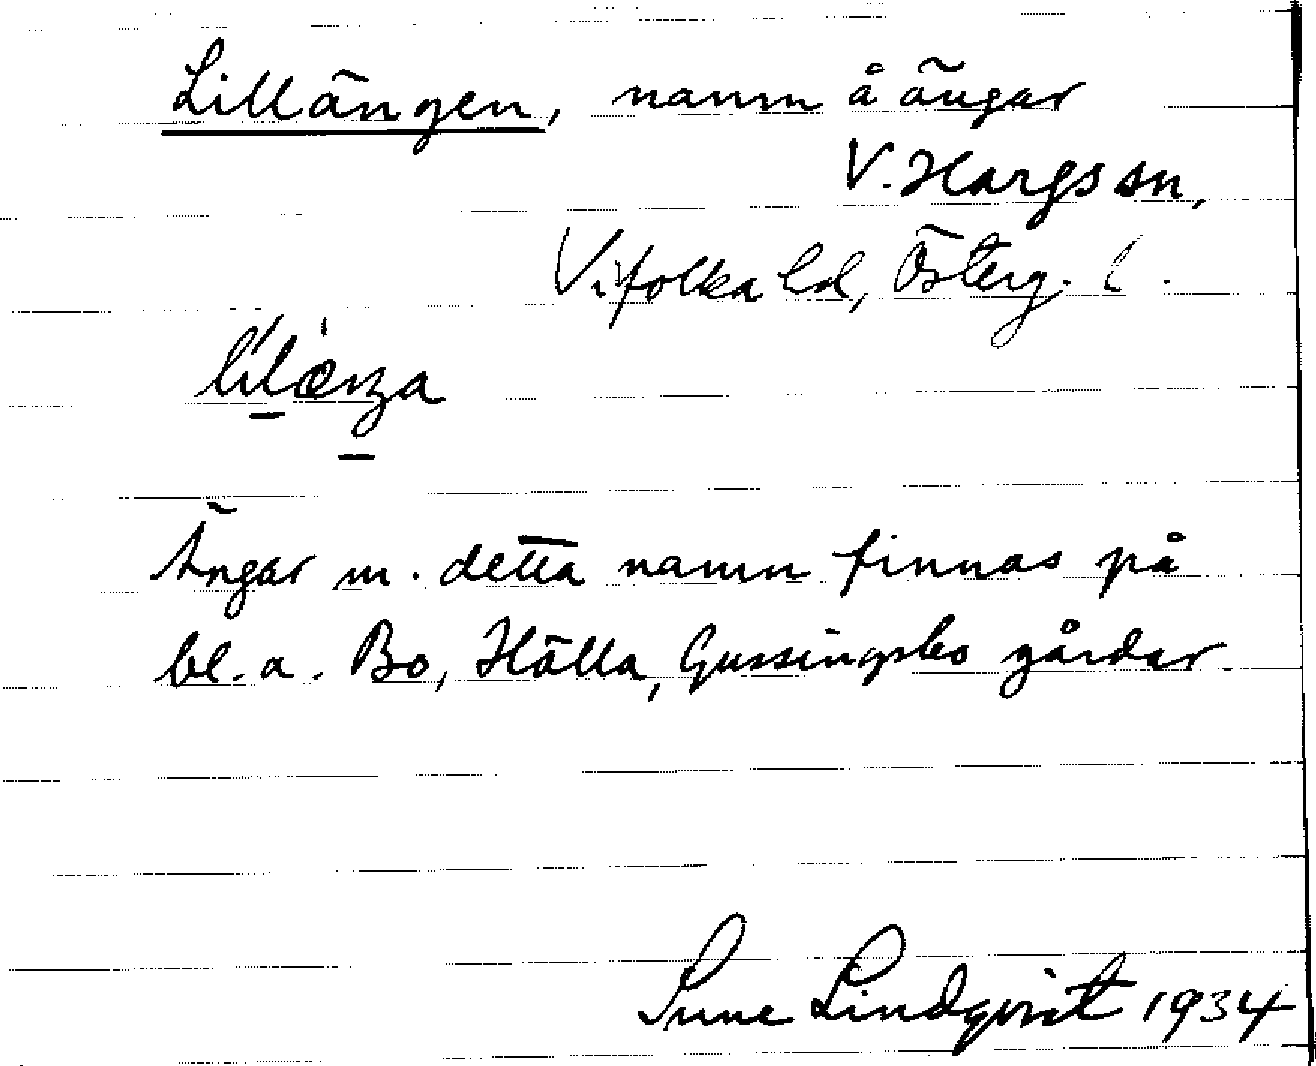 Lillängen, namn å ängar
V. Hargs sn,
Vifolka hd, Österg. l.
lilæŋa
Ängar m. detta namn finnas på
bl. a. Bo, Hälla, Gussingsbo gårdar.
Sune Lindqvist 1934